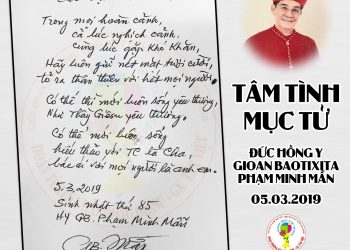 Trong mọi hoàn cảnh,
cả lúc nghịch cảnh,
cũng lúc gặp khó khăn,
Hãy luôn giữ nét mặt tươi cười,
tỏ ra thân thiện với hết mọi người.
Có thế thì mới luôn sống yêu thương,
Như Thầy Giêsu yêu thương.
Có thế mới luôn sống
hiếu thảo với TC là Cha,
bác ái với mọi người là anh em.
5.3.2019
Sinh nhật thứ 85
HY GB. Phạm Minh Mẫn
TÂM TÌNH
MỤC TỬ
ĐỨC HỒNG Y
GIOAN BAOTIXITA
PHẠM MINH MẪN
05.03.2019